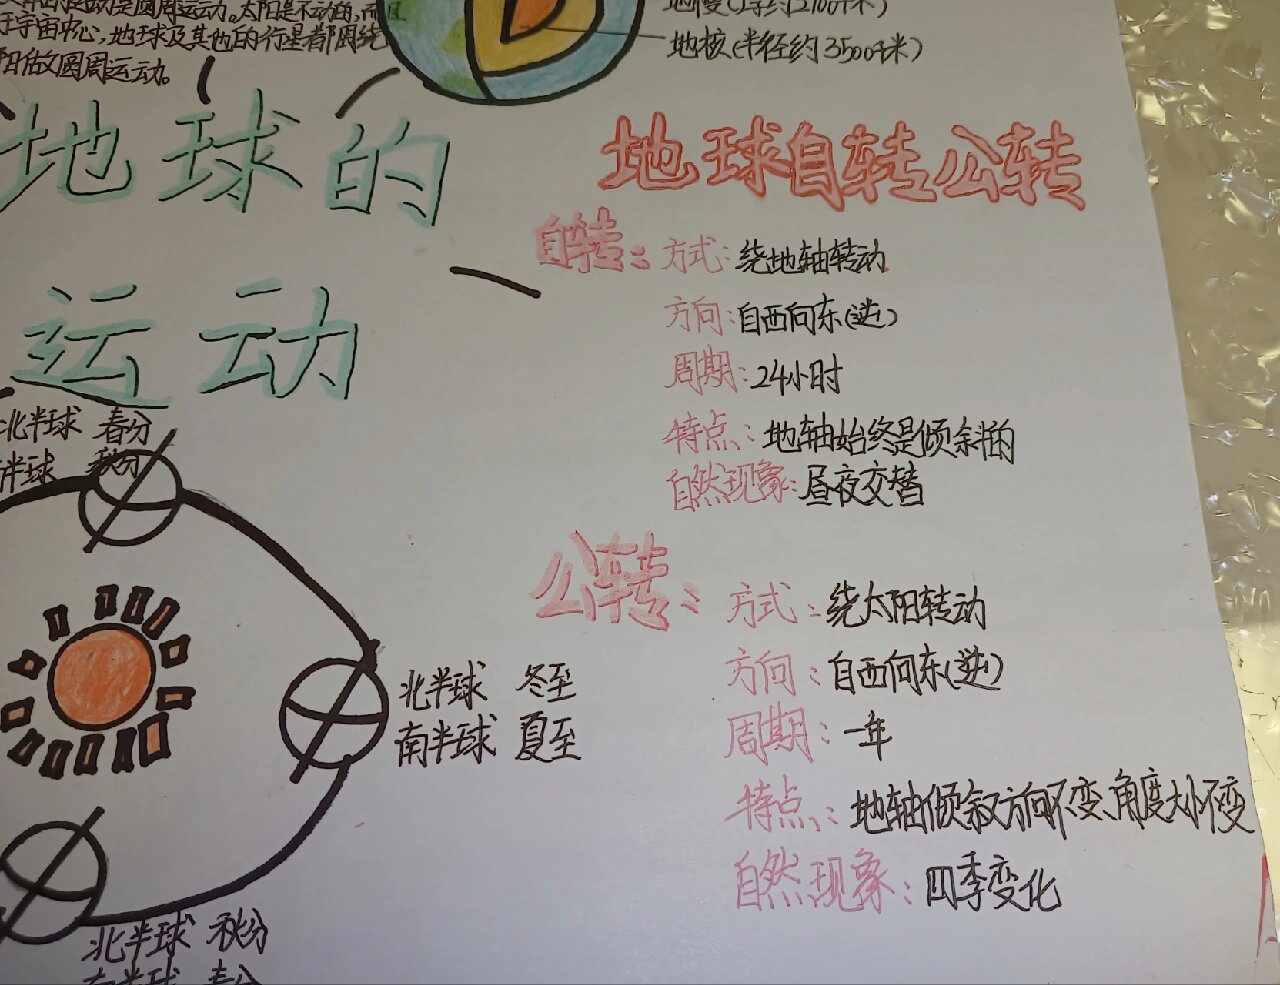 是圆周运动。太阳是不动的,而且
于宇宙中心,地球及其他的行星都围绕
阳做圆周运动。
地核(半径约3500千米)
地球的
运动
地球自转公转
自转:方式:绕地轴转动
方向:自西向东(逆)
周期:24小时
特点:地轴始终是倾斜的
自然现象:昼夜交替
公转:方式:绕太阳转动
方向:自西向东(逆)
周期:一年
特点:地轴倾叙方向不变、角度大小不变
自然现象:四季变化
北半球 春分
半球 秋分
北半球 冬至
南半球 夏至
北半球 秋分
南半球 春分